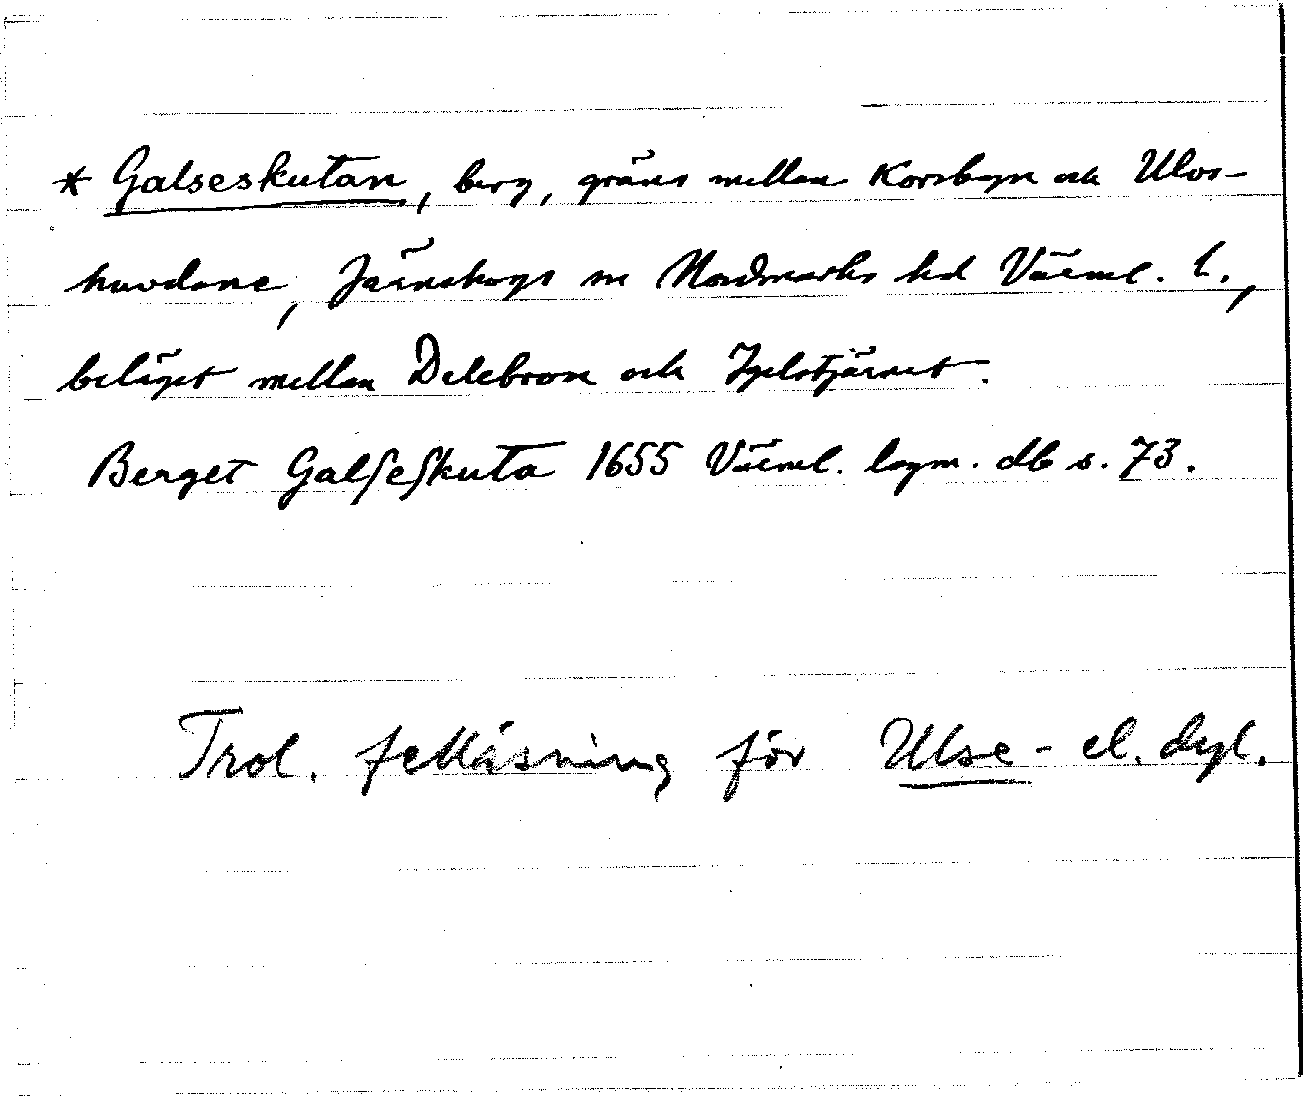 * Galseskutan, berg, gräns mellan Korsbyn och Ulvs-
huvdane, Järnskogs sn Nordmarks hd Värml. l.,
beläget mellan Delebron och Igelstjärnet.
Berget Galſeſkuta 1655 Värml. lagm. db s. 73.
Trol. felläsning för Ulse- el. dyl.